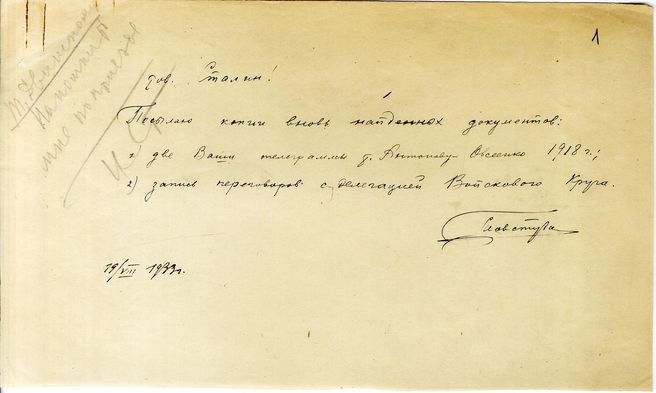 1
Напомнить
мне по приезде
тов. Сталин!
Посылаю копии вновь найденных документов:
1) две Ваши телеграммы т. Антонову-Овсеенко 1918 г.;
2) запись переговоров с делегацией Войскового Круга.
Товстуха
19/VIII 1933г.